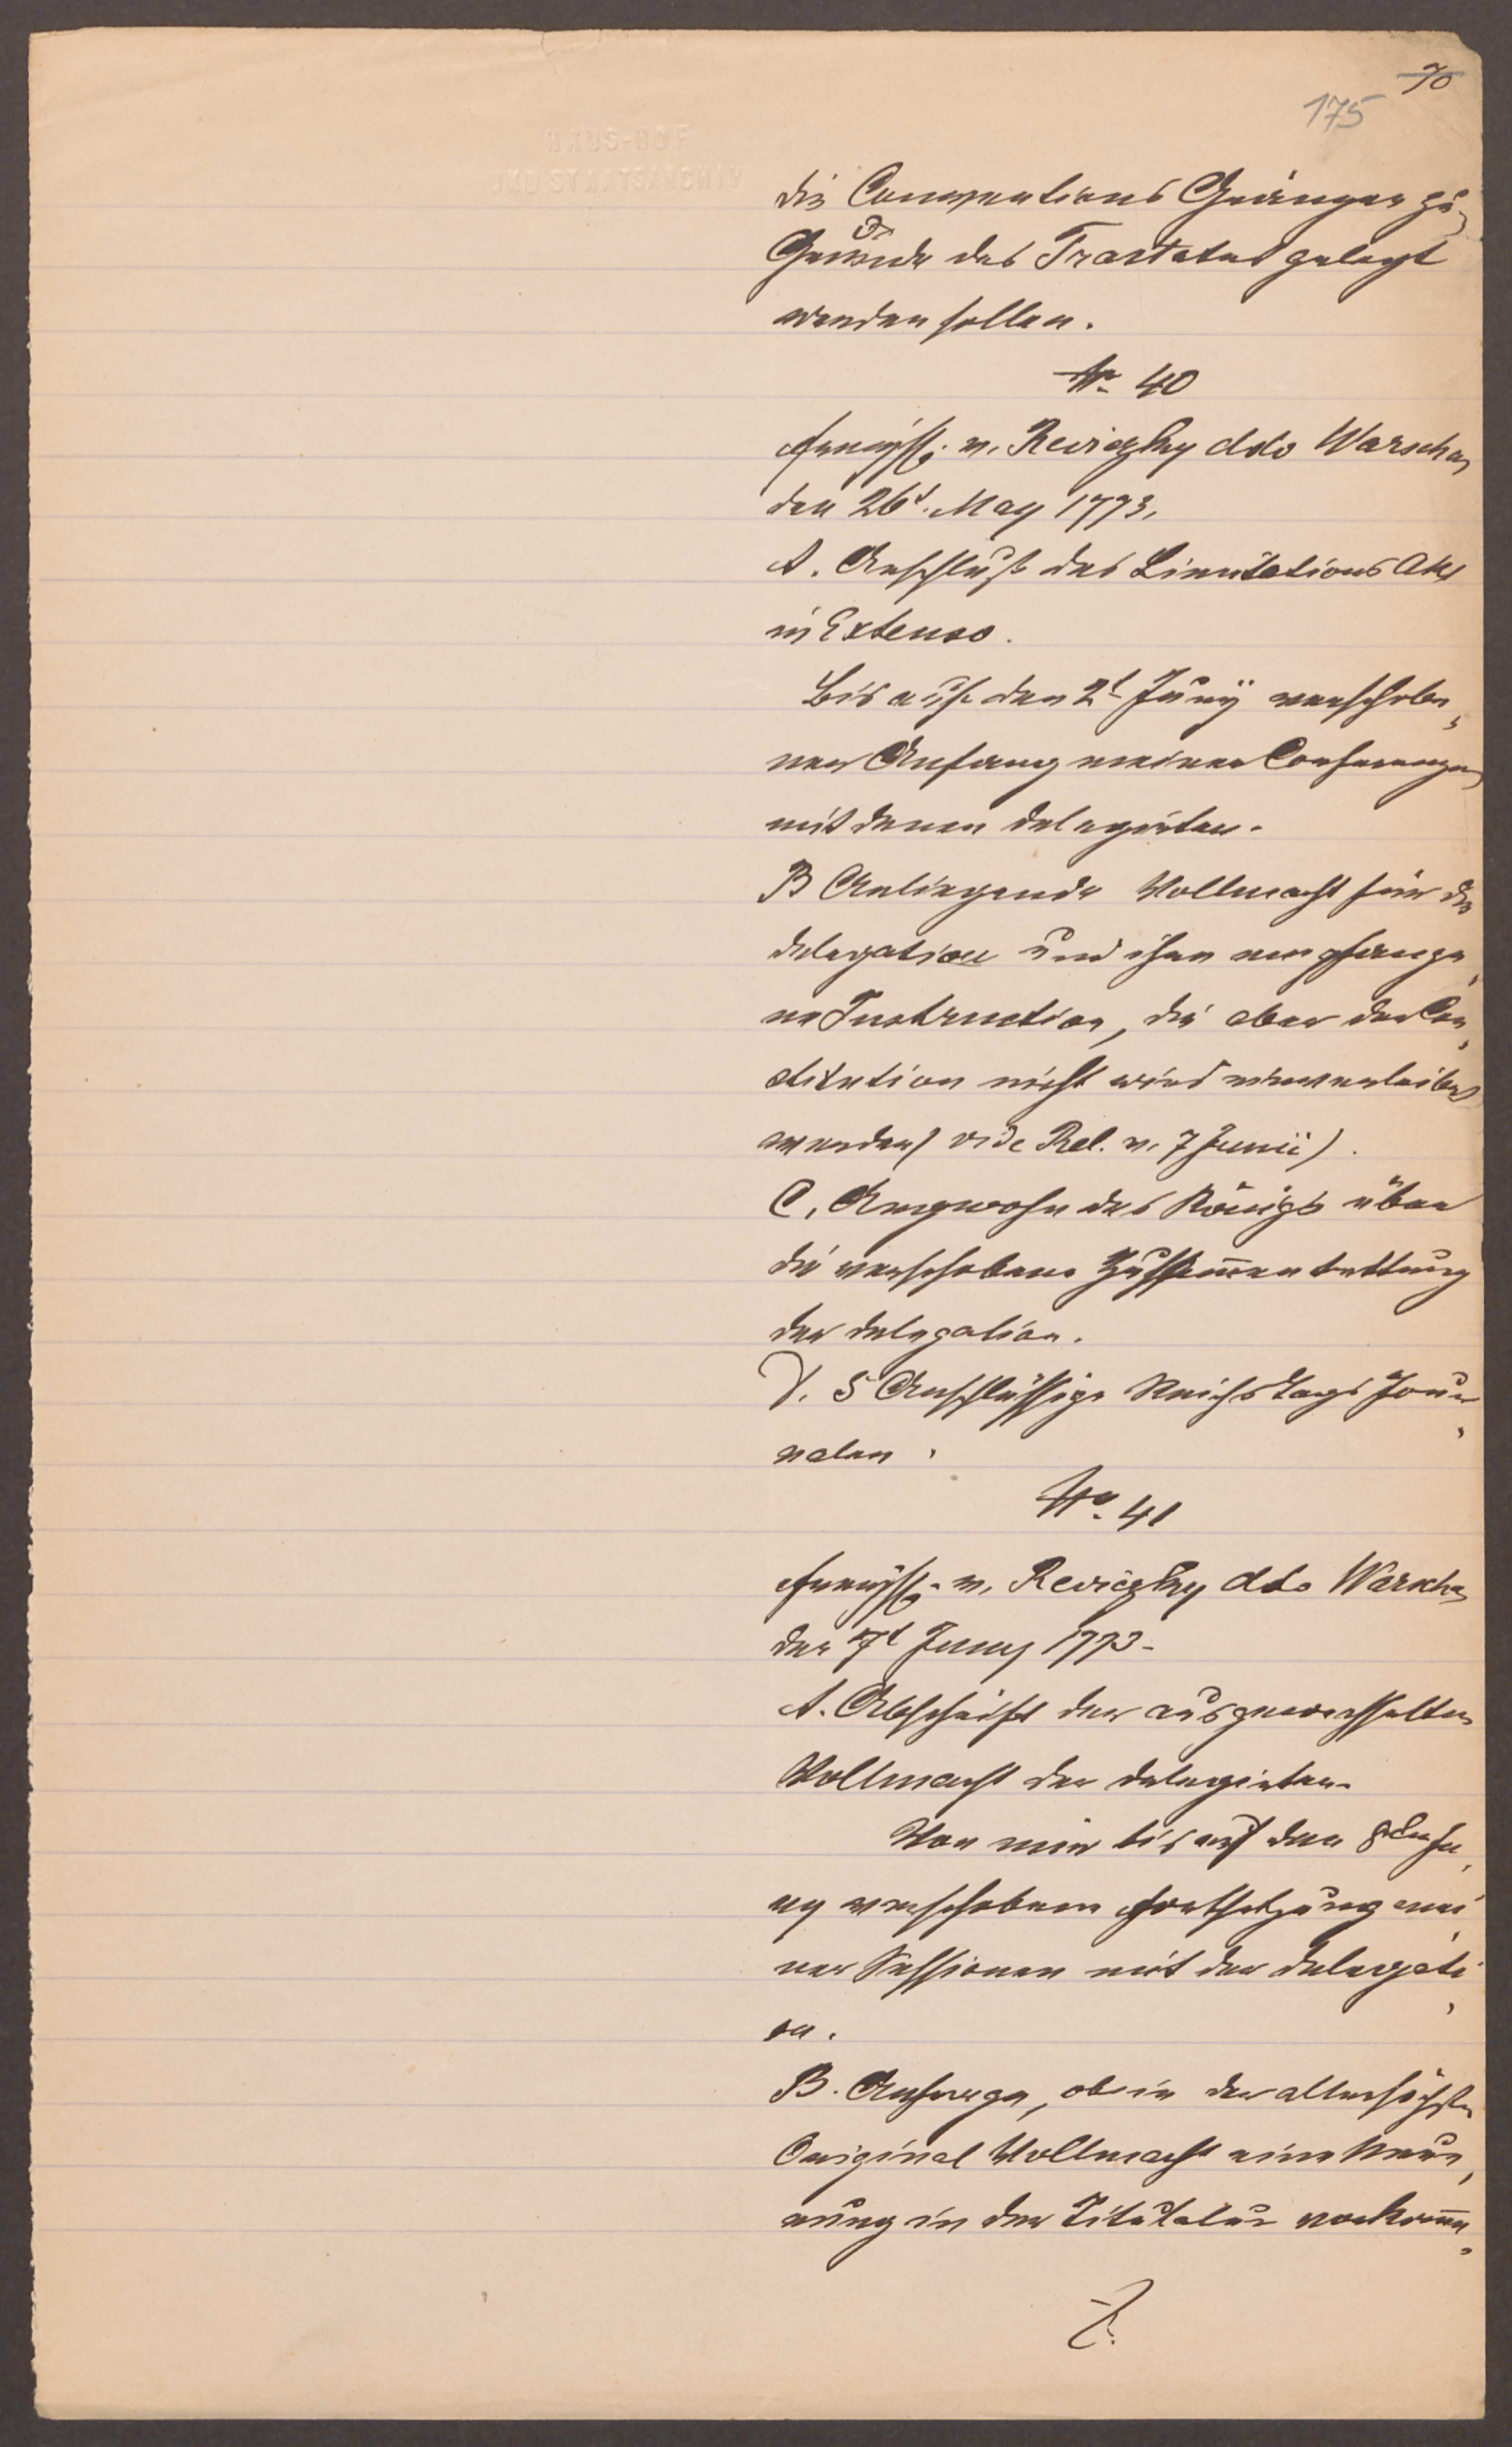 70
175
HAUS-HOF
UND STAATSARCHIV
die Conventions Gränzen zu
Grunde des Tractates gelegt
werden sollen.
Nr. 40
v. Reviczky ddo Warschau
den 26t. May 1773.
A. Anschluß des Limitations Akt
in Extenso.
Bis auf den 2t Juny verschobe,
ner Anfang meiner Conferenzen
mit denen delegirten.
B Anliegende Vollmacht für die
delegation und ihr empfange,
ne Instruction, die aber der Con,
stitution nicht wird einverleibet
werden (vide Rel. v. 7 Junii).
C. Argwohn des Königs über
die verschobene Zusammentrettung
der delegation.
D. 5 Anschlüssige Reichstags Jour,
nalen.
No. 41
v. Reviczky ddo Warschau
den 7t Juny 1773.
A. Abschrift der ausgewechselten
Vollmacht der delegirten.
Von mir bis auf den 8ten Ju,
ny verschobene Fortsetzung mei,
ner Sessionen mit der delegati,
on.
B. Anfrage, ob in der allerhöchsten
Original Vollmacht eine Neue,
rung in der Titulatur vorkomme,